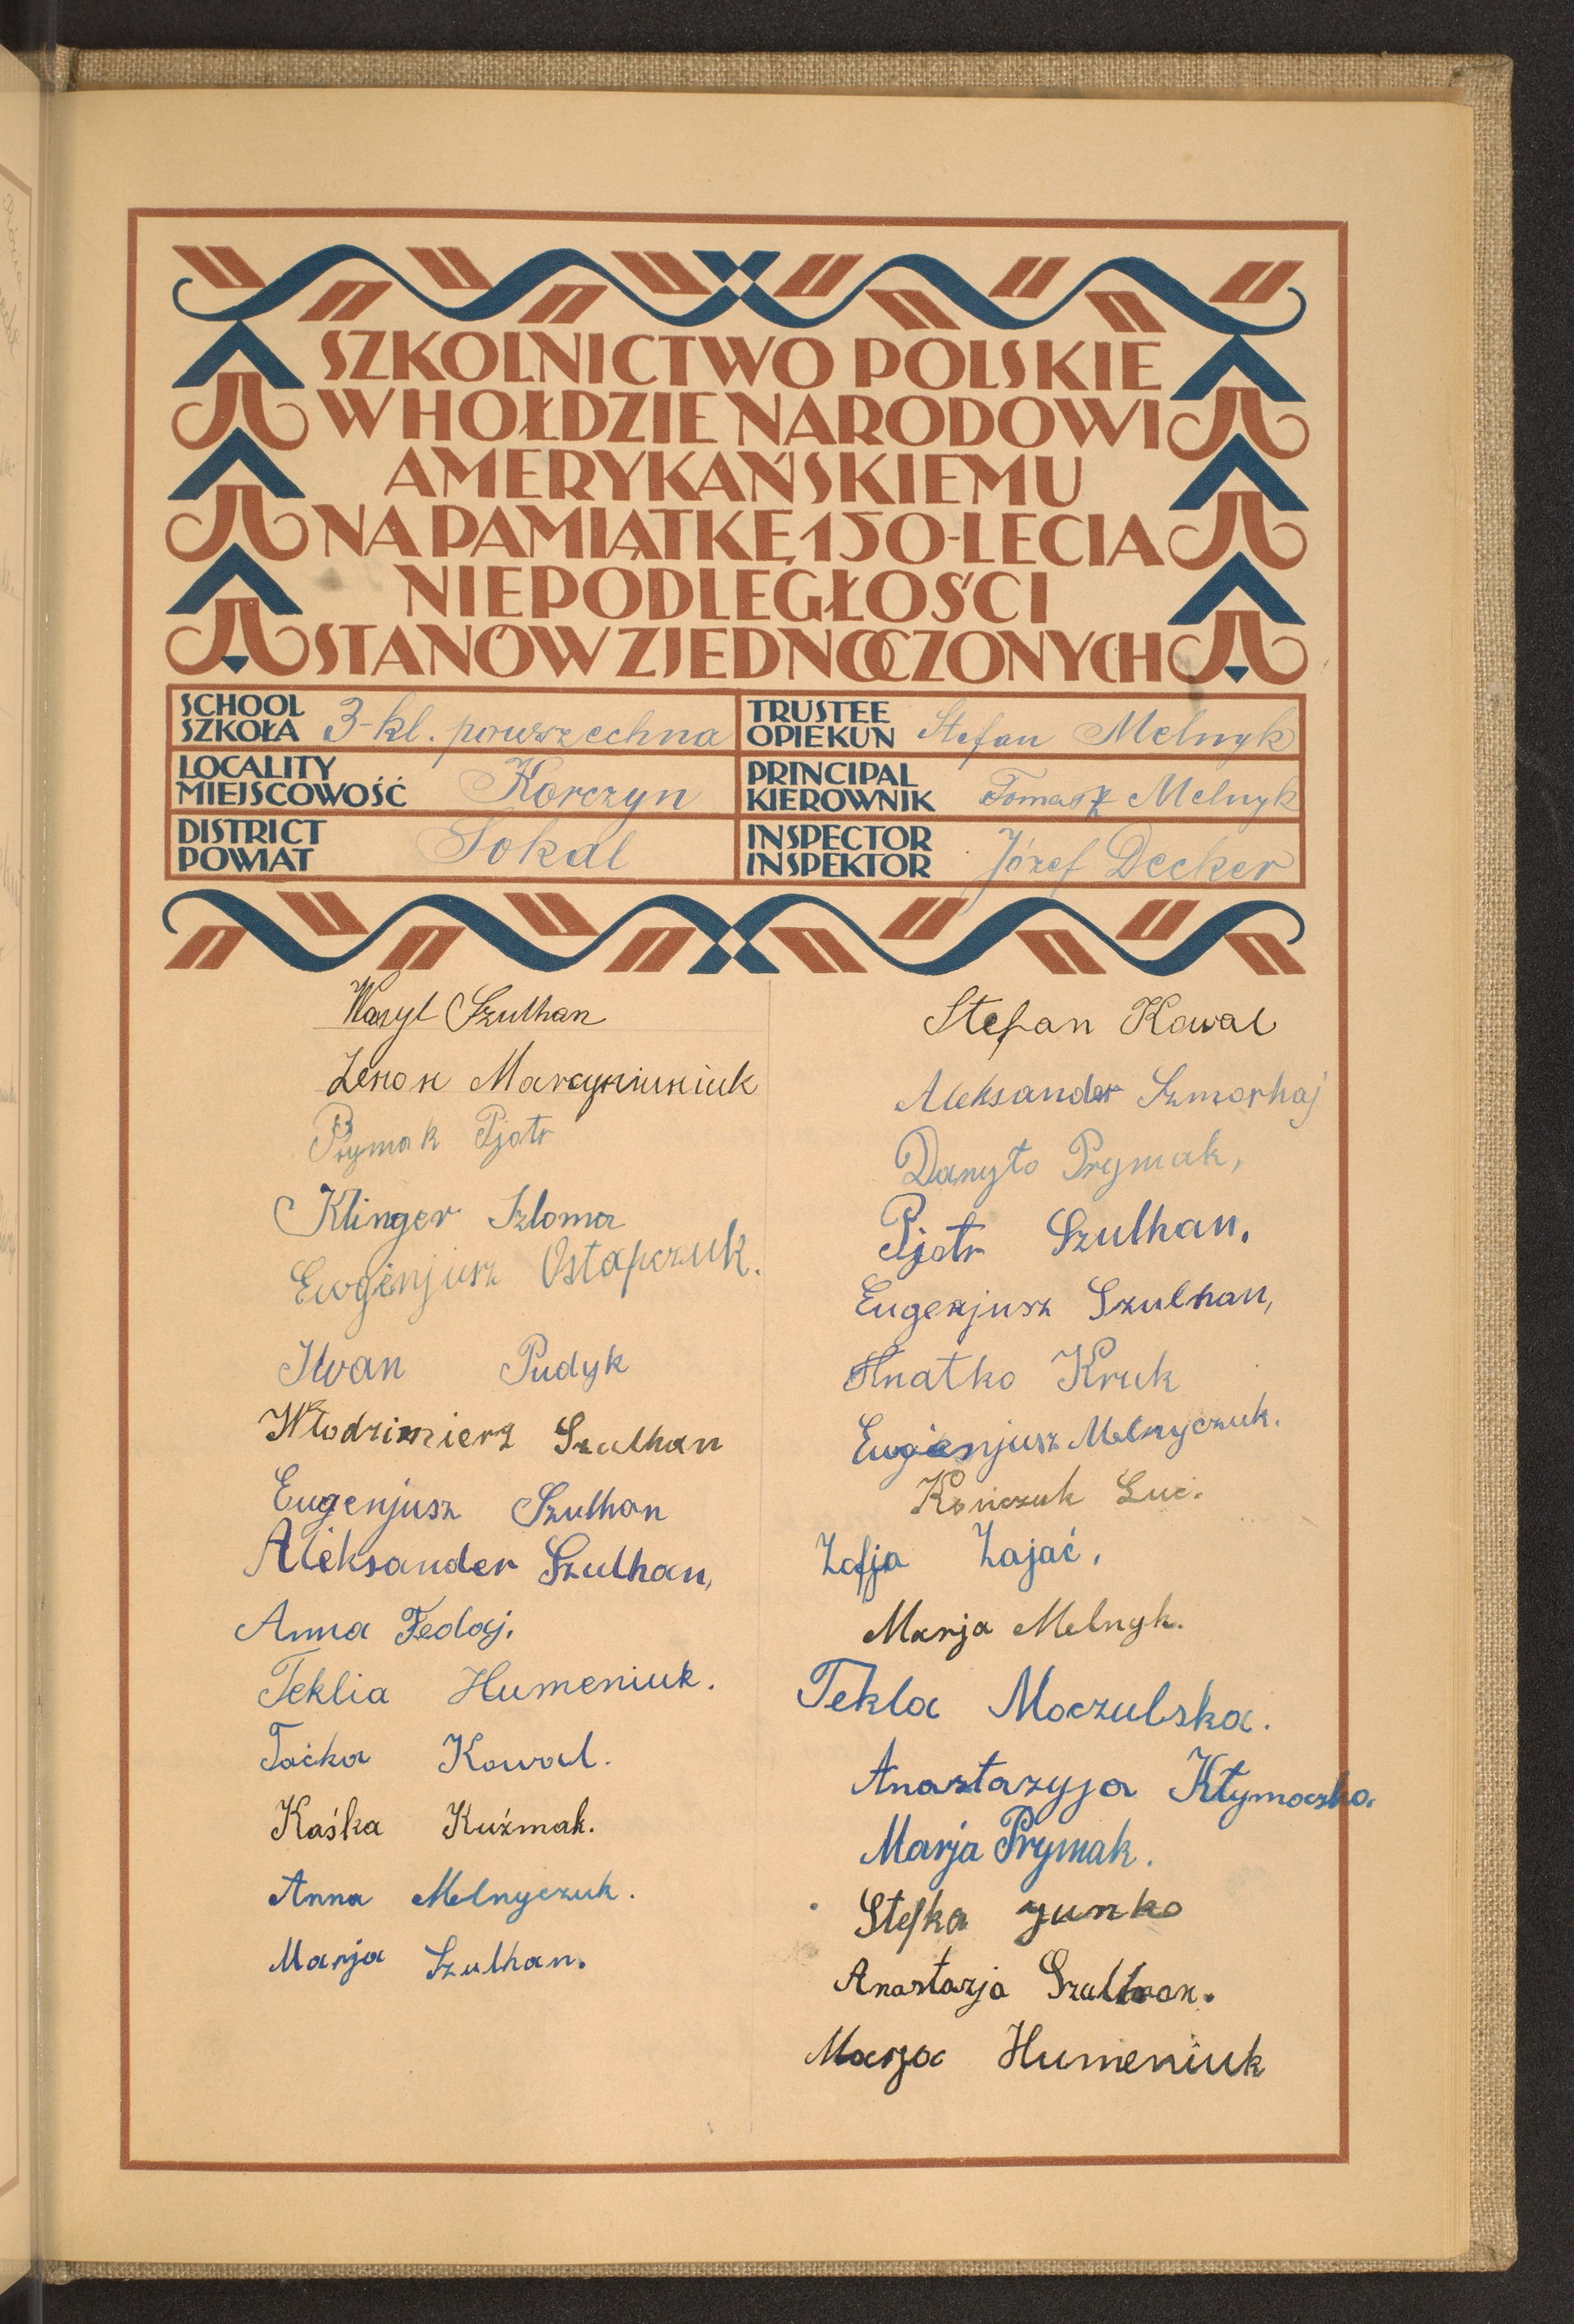 SZKOLNICTWO POLSKIE
W HOŁDZIE NARODOWI
AMERYKAŃSKIEMU
NA PAMIĄTKĘ 150-LECIA
NIEPODLEGŁOŚCI
STANÓW ZJEDNOCZONYCH
SCHOOL
SZKOŁA 3-kl. powszechna
TRUSTEE
OPIEKUN Stefan Melnyk
LOCALITY
MIEJSCOWOŚĆ Korczyn
PRINCIPAL
KIEROWNIK Tomasz Melnyk
DISTRICT
POWIAT Sokal
INSPECTOR
INSPEKTOR Józef Decker
Wasyl Szulhan
Zenon Marcyniuniuk
Prymak Pjotr
Klinger Szloma
Ewgenjusz Ostapczuk.
Iwan Pudyk
Włodzimierz Szulhan
Eugenjusz Szulhan
Aleksander Szulhan,
Anna Fedaj.
Teklia Humeniuk.
Taćka Kowal.
Kaśka Kuźmak.
Anna Melnyczuk.
Marja Szulhan.
Stefan Kowal
Aleksander Szmorhaj
Danyło Prymak,
Pjotr Szulhan.
Eugenjusz Szulhan,
Hnatko Kruk
Eugienjusz Melnyczuk.
Kończuk Luć.
Zofja Zajać.
Marja Melnyk.
Tekla Moczulska.
Anastazyja Kłymoczko.
Marja Prymak.
Stefka Junko
Anastazja Szulhan.
Marja Humeniuk